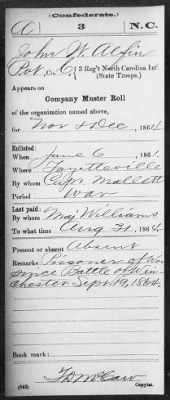 (Confederate.)
A 3 N.C.
John W. Alfin
Pvt, Co. C, 3 Reg't North Carolina Inf.
(State Troops.)
Appears on
Company Muster Roll
of the organization named above,
for Nov & Dec, 1864.
Enlisted:
When June 6, 1861.
Where Fayetteville
By whom Capt Mallett
Period War
Last paid:
By whom Maj Williams
To what time Aug 31, 1864.
Present or absent Absent
Remarks: Prisoner of War
since Battle of Win
chester Sept 19, 1864.
Book mark:
(642)
Copyist.